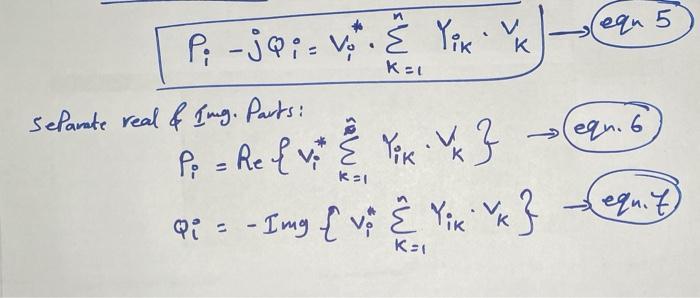 Pᵢ - jQᵢ = Vᵢ* . Σ_{K=1}^{n} Yᵢₖ . Vₖ → eqn 5
Separate real & Img. Parts:
Pᵢ = Re { Vᵢ* Σ_{K=1}^{n} Yᵢₖ . Vₖ } → eqn. 6
Qᵢ = - Img { Vᵢ* Σ_{K=1}^{n} Yᵢₖ . Vₖ } → eqn. 7